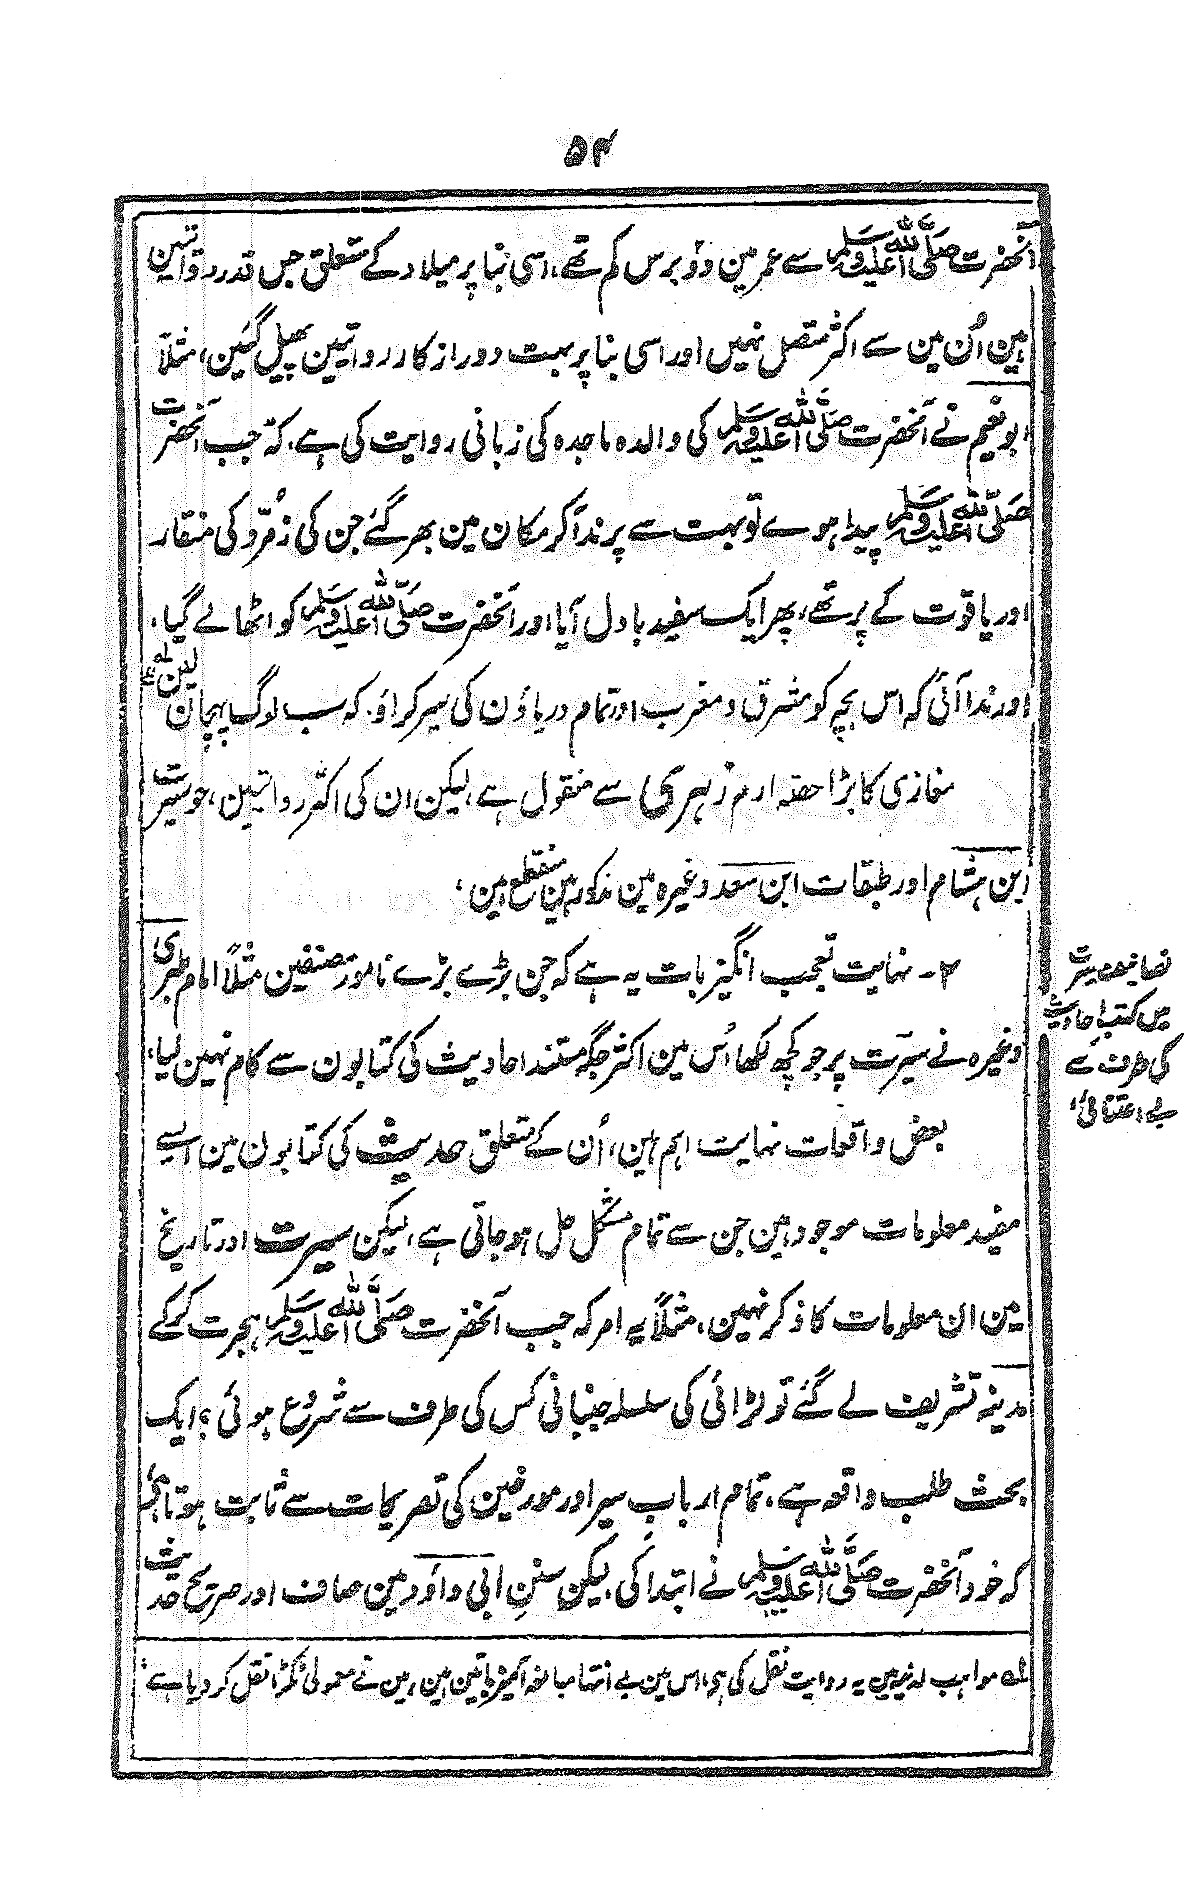 ۵۴
آنحضرت صلی اللہ علیہ وسلم سے عمر مین دو برس کم تھے، اسی بنا پر میلاد کے متعلق جس قدر روایتین
ہین اُن مین سے اکثر متصل نہیں اور اسی بنا پر بہت دور از کار روایتین پھیل گئین، مثلاً
ابونعیم نے آنحضرت صلی اللہ علیہ وسلم کی والدہ ماجدہ کی زبانی روایت کی ہے، کہ جب آنحضرت
صلی اللہ علیہ وسلم پیدا ہوے تو بہت سے پرند آکر مکان مین بھر گئے جن کی زمرّد کی منقار
اور یاقوت کے پر تھے، پھر ایک سفید بادل آیا اور آنحضرت صلی اللہ علیہ وسلم کو اٹھا لے گیا،
اور ندا آئی کہ اس بچہ کو مشرق و مغرب اور تمام دریاؤن کی سیر کراؤ کہ سب لوگ پہچان لین لہ
مغازی کا بڑا حصہ امام زہری سے منقول ہے، لیکن ان کی اکثر روایتین، جو سیرت
ابن ہشام اور طبقات ابن سعد وغیرہ مین مذکور ہین منقطع ہین،
۲- نہایت تعجب انگیز بات یہ ہے کہ جن بڑے بڑے نامور مصنفین مثلاً امام طبری
وغیرہ نے سیرت پر جو کچھ لکھا اُس مین اکثر جگہ مستند احادیث کی کتابون سے کام نہین لیا،
تصانیف سیرت
میں کتب احادیث
کی طرف سے
بے اعتنائی،
بعض واقعات نہایت اہم ہین، اُن کے متعلق حدیث کی کتابون مین ایسے
مفید معلومات موجود ہین جن سے تمام مشکل حل ہو جاتی ہے، لیکن سیرت اور تاریخ
مین ان معلومات کا ذکر نہین، مثلاً یہ امر کہ جب آنحضرت صلی اللہ علیہ وسلم ہجرت کر کے
مدینہ تشریف لے گئے تو لڑائی کی سلسلہ جنبانی کس کی طرف سے شروع ہوئی؟ ایک
بحث طلب واقعہ ہے، تمام ارباب سیر اور مورخین کی تصریحات سے ثابت ہوتا ہے
کہ خود آنحضرت صلی اللہ علیہ وسلم نے ابتدا کی، لیکن سنن ابی داؤد مین صاف اور صریح حدیث
لہ مواہب لدنیہ مین یہ روایت نقل کی ہے، اس مین بے انتہا مبالغہ آمیز باتین ہین، مین نے معمولی ٹکڑا نقل کر دیا ہے،